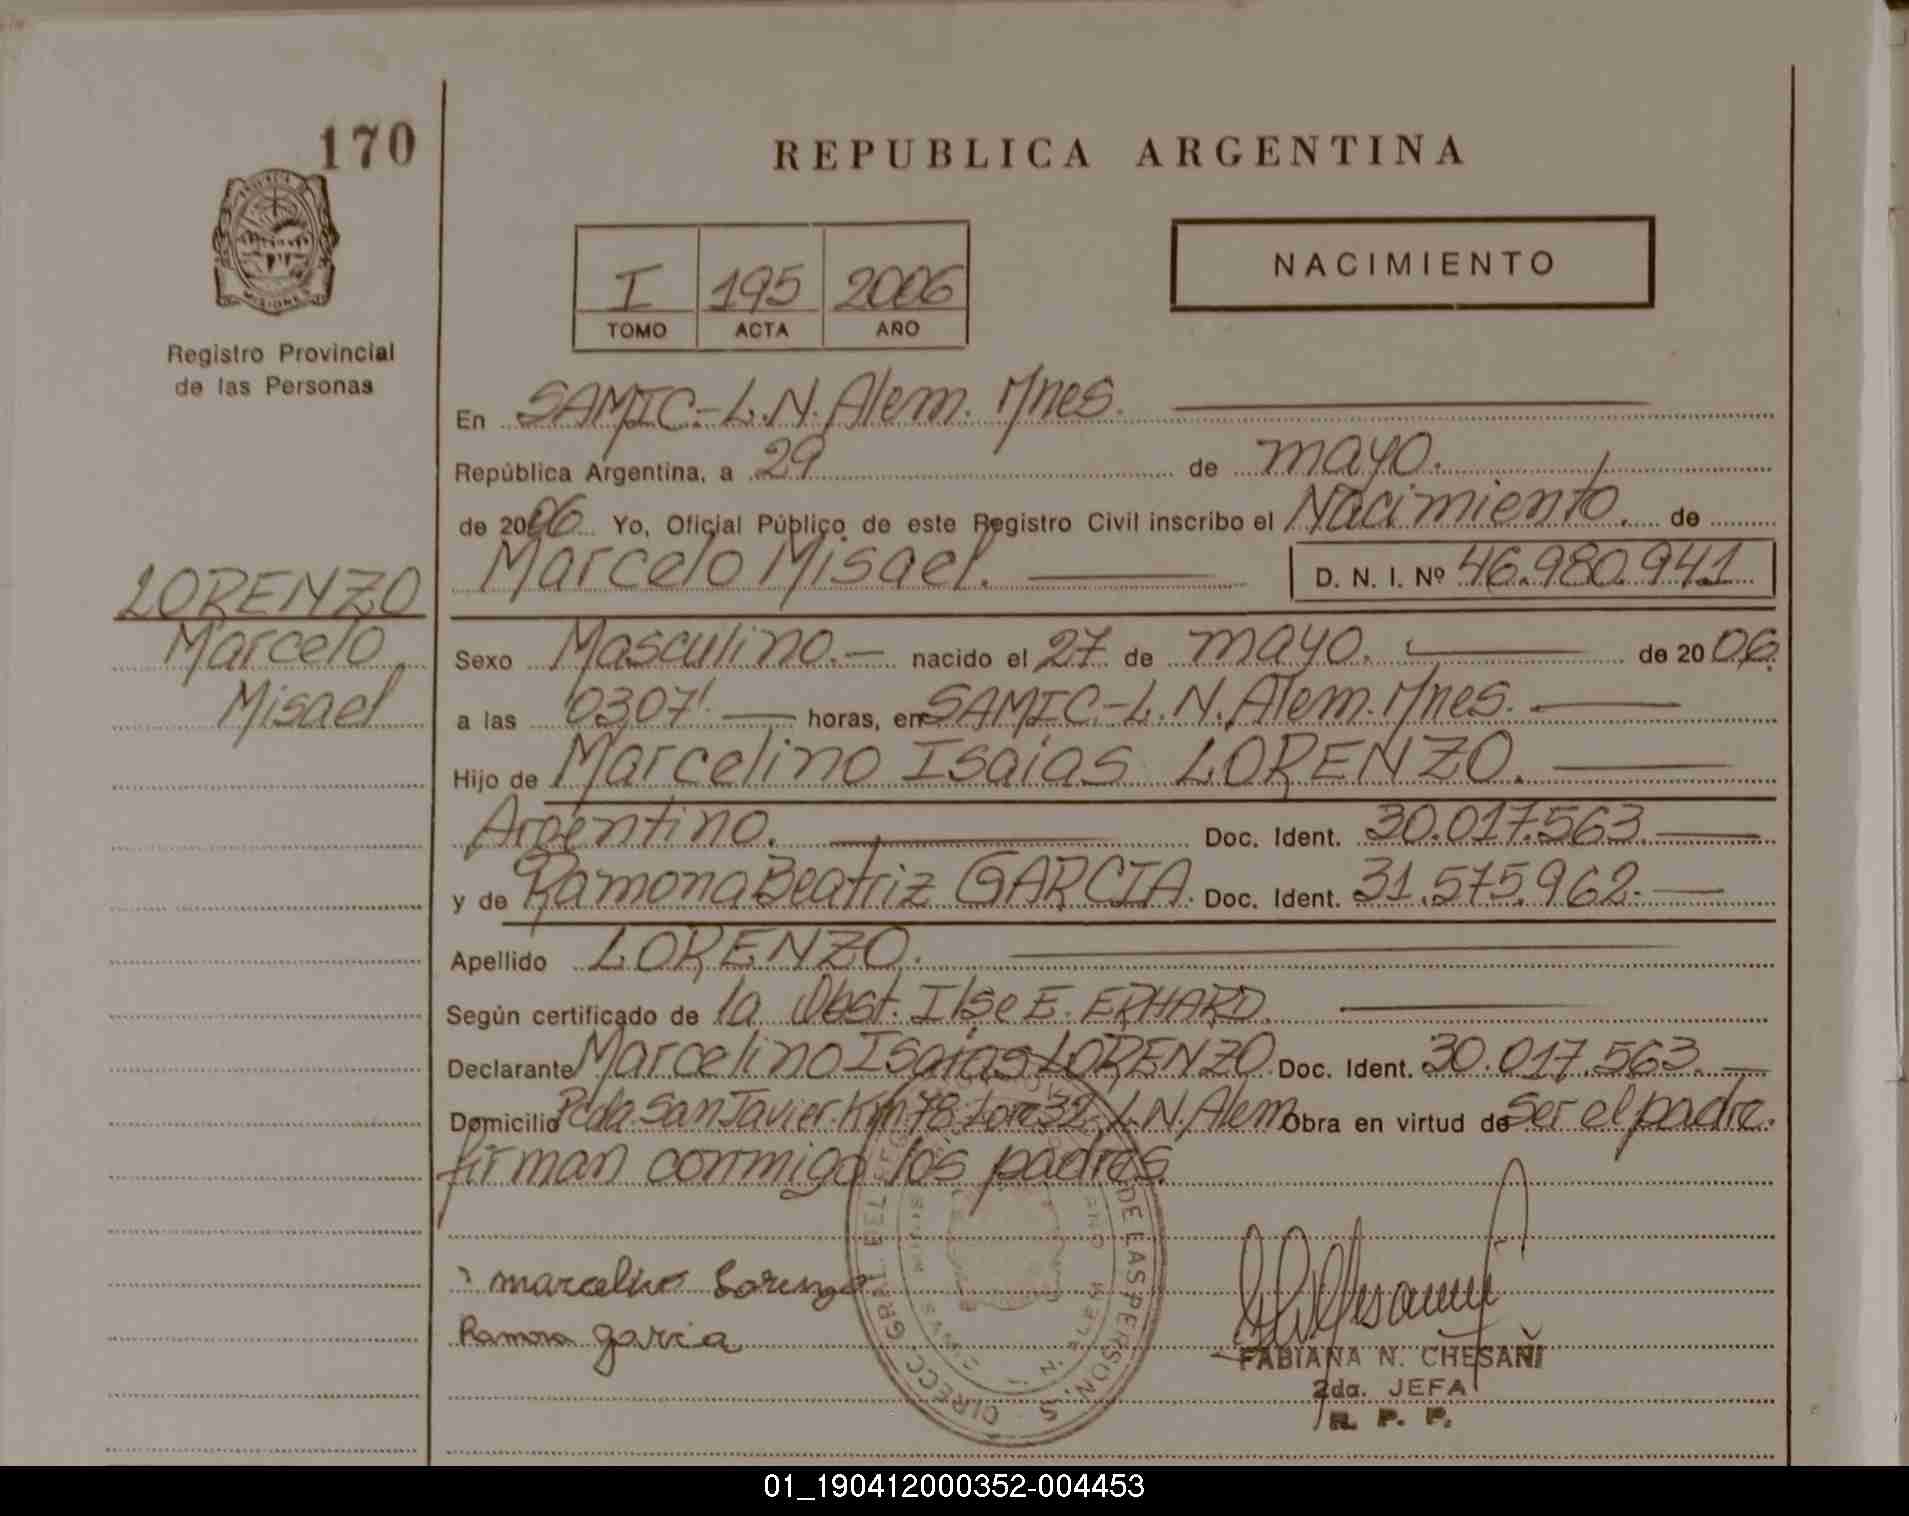 170
REPUBLICA ARGENTINA
MISIONES
Registro Provincial
de las Personas
I 195 2006
TOMO ACTA AÑO
NACIMIENTO
En SAMIC.-L.N. Alem. Mnes.
República Argentina, a 29 de mayo.
de 2006 Yo, Oficial Público de este Registro Civil inscribo el Nacimiento. de
Marcelo Misael. D. N. I. Nº 46.980.941
LORENZO
Marcelo
Misael
Sexo Masculino.- nacido el 27 de mayo. de 2006.
a las 0307' horas, en SAMIC.-L.N. Alem. Mnes.
Hijo de Marcelino Isaias LORENZO.
Argentino. Doc. Ident. 30.017.563.
y de Ramona Beatriz GARCIA. Doc. Ident. 31.575.962.
Apellido LORENZO.
Según certificado de la Obst. Ilse E. ERHARD.
Declarante Marcelino Isaias LORENZO. Doc. Ident. 30.017.563.
Domicilio Pcda. San Javier. Km 78. Lote 32. L.N. Alem Obra en virtud de ser el padre.
firman conmigo los padres.
marcelino Lorenzo
Ramona garcia
DE LAS PERSONAS
FABIANA N. CHESAÑI
2da. JEFA
R. P. P.
01_190412000352-004453